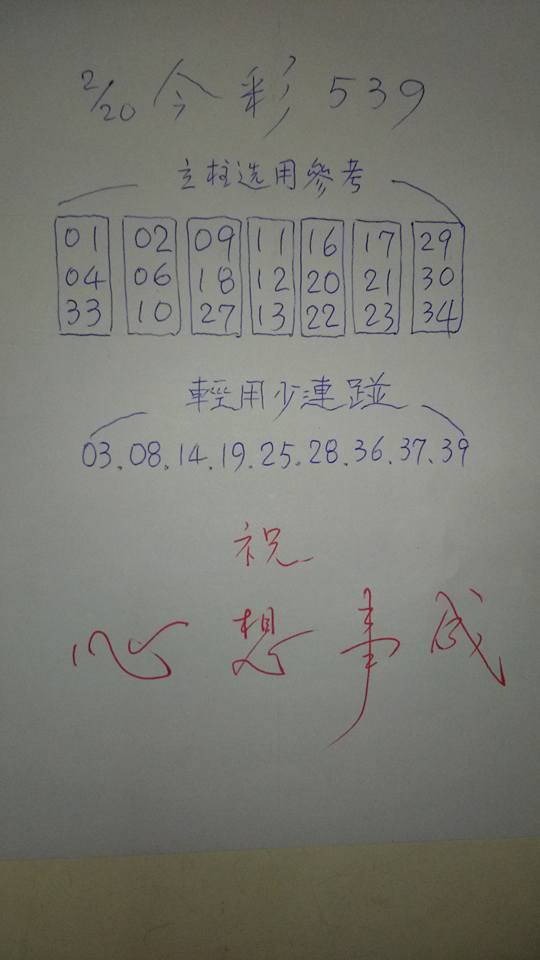 2/20 今彩 539
主柱选用參考
01 02 09 11 16 17 29
04 06 18 12 20 21 30
33 10 27 13 22 23 34
輕用少連踫
03.08.14.19.25.28.36.37.39
祝
心想事成